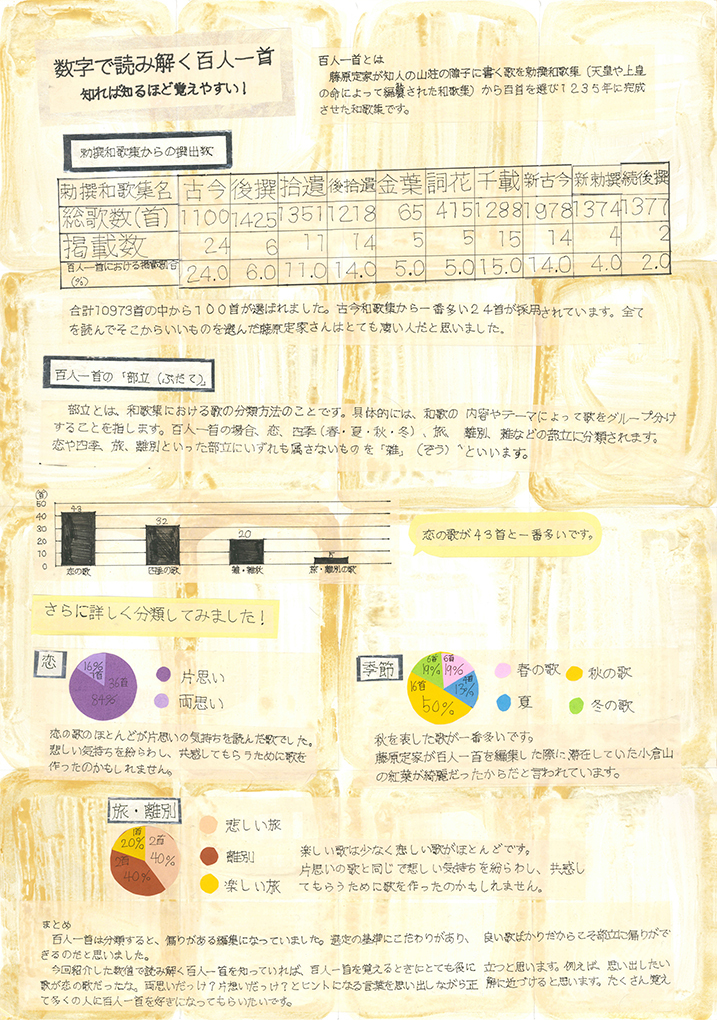 数字で読み解く百人一首
知れば知るほど覚えやすい！
百人一首とは
藤原定家が知人の山荘の障子に書く歌を勅撰和歌集（天皇や上皇
の命によって編纂された和歌集）から百首を選び１２３５年に完成
させた和歌集です。
勅撰和歌集からの撰出数
勅撰和歌集名 古今 後撰 拾遺 後拾遺 金葉 詞花 千載 新古今 新勅撰 続後撰
総歌数(首) 1100 1425 1351 1218 65 415 1288 1978 1374 1377
掲載数 24 6 11 14 5 5 15 14 4 2
百人一首における掲載割合(%) 24.0 6.0 11.0 14.0 5.0 5.0 15.0 14.0 4.0 2.0
合計10973首の中から１００首が選ばれました。古今和歌集から一番多い２４首が採用されています。全て
を読んでそこからいいものを選んだ藤原定家さんはとても凄い人だと思いました。
百人一首の「部立（ぶだて）」
部立とは、和歌集における歌の分類方法のことです。具体的には、和歌の内容やテーマによって歌をグループ分け
することを指します。百人一首の場合、恋、四季（春・夏・秋・冬）、旅、離別、雑などの部立に分類されます。
恋や四季、旅、離別といった部立にいずれも属さないものを「雑」（ぞう）といいます。
(首)
50
40
30
20
10
0
43
32
20
5
恋の歌 四季の歌 雑・雑秋 旅・離別の歌
恋の歌が４３首と一番多いです。
さらに詳しく分類してみました！
恋
16%
7首
36首
84%
片思い
両思い
恋の歌のほとんどが片思いの気持ちを読んだ歌でした。
悲しい気持ちを紛らわし、共感してもらうために歌を
作ったのかもしれません。
季節
6首
19%
6首
19%
4首
13%
16首
50%
春の歌
秋の歌
夏
冬の歌
秋を表した歌が一番多いです。
藤原定家が百人一首を編集した際に滞在していた小倉山
の紅葉が綺麗だったからだと言われています。
旅・離別
1首
20%
2首
40%
2首
40%
悲しい旅
離別
楽しい旅
楽しい歌は少なく悲しい歌がほとんどです。
片思いの歌と同じで悲しい気持ちを紛らわし、共感し
てもらうために歌を作ったのかもしれません。
まとめ
百人一首は分類すると、偏りがある編集になっていました。選定の基準にこだわりがあり、良い歌ばかりだからこそ部立に偏りがで
きるのだと思いました。
今回紹介した数値で読み解く百人一首を知っていれば、百人一首を覚えるときにとても役に立つと思います。例えば、思い出したい
歌が恋の歌だったな。両思いだっけ？片想いだっけ？とヒントになる言葉を思い出しながら正解に近づけると思います。たくさん覚え
て多くの人に百人一首を好きになってもらいたいです。